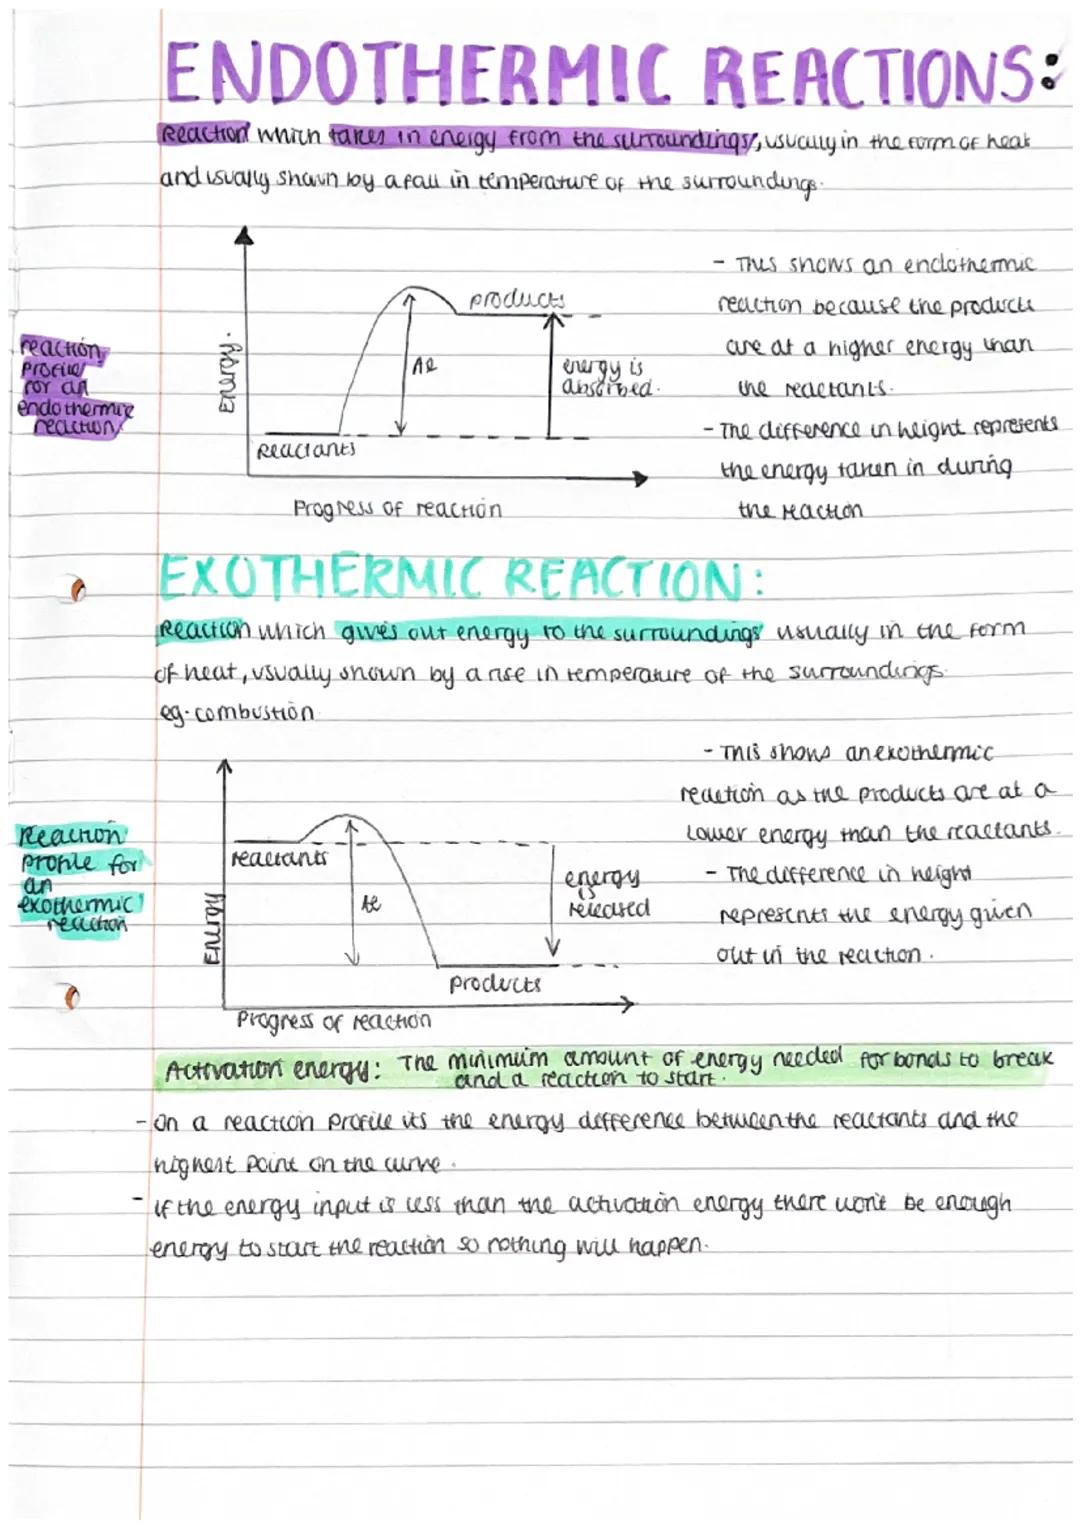 ENDOTHERMIC REACTIONS:
Reaction which takes in energy from the surroundings, usually in the form of heat
and usually shown by a fall in temperature of the surroundings.
reaction
profile
for an
endothermic
reaction.
Energy.
products
AE
energy is
absorbed.
Reactants
Progress of reaction
- This shows an endothermic
reaction because the products
are at a higher energy than
the reactants.
- The difference in height represents
the energy taken in during
the reaction
EXOTHERMIC REACTION:
Reaction which gives out energy to the surroundings usually in the form
of heat, usually shown by a rise in temperature of the surroundings.
eg. combustion.
Reaction
profile for
an
exothermic
reaction
Energy
reactants
AE
energy
is
released
products
Progress of reaction
- This shows an exothermic
reaction as the products are at a
lower energy than the reactants.
- The difference in height
represents the energy given
out in the reaction.
Activation energy: The minimum amount of energy needed for bonds to break
and a reaction to start.
- On a reaction profile its the energy difference between the reactants and the
highest point on the curve.
- if the energy input is less than the activation energy there won't be enough
energy to start the reaction so nothing will happen.